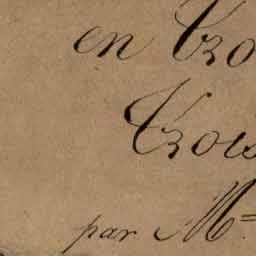 en Tro
Trois
par M=